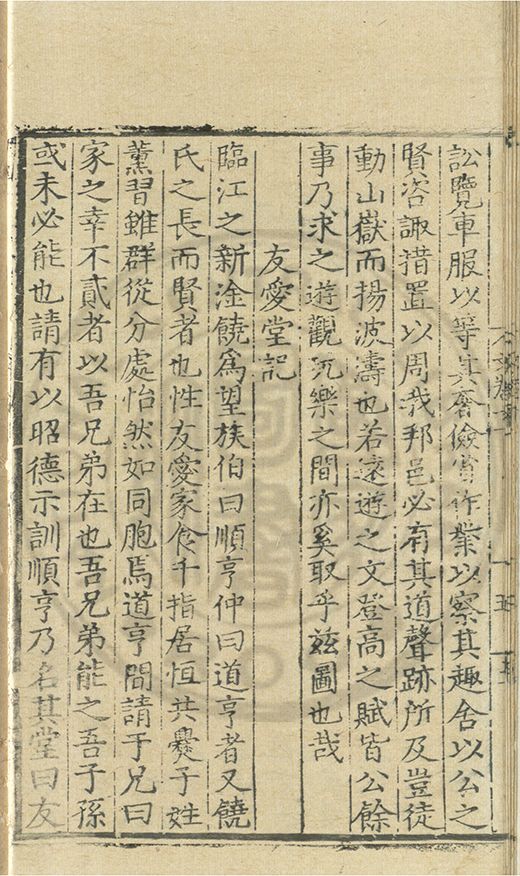 訟覽車服以等其奢儉審作業以察其趣舍以公之
賢咨諏措置以周我邦邑必有其道聲跡所及豈徒
動山嶽而揚波濤也若遠遊之文登高之賦皆公餘
事乃求之遊觀玩樂之間亦奚取乎茲圖也哉
友愛堂記
臨江之新淦饒為望族伯曰順亨仲曰道亨者又饒
氏之長而賢者也性友愛家食千指居恒共爨子姓
薰習雖群從分處怡然如同胞焉道亨間請于兄曰
家之幸不貳者以吾兄弟在也吾兄弟能之吾子孫
或未必能也請有以昭德示訓順亨乃名其堂曰友